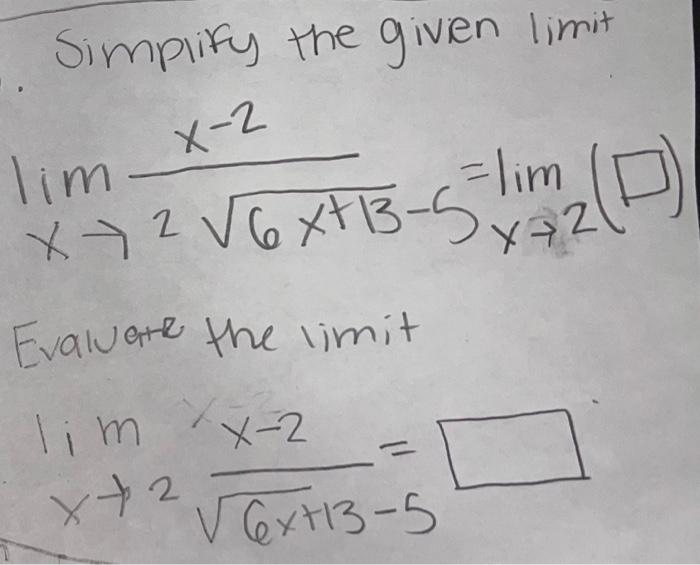 Simplify the given limit
lim x→2 (x-2)/(√(6x+13)-5) = lim x→2 (□)
Evaluate the limit
lim x→2 (x-2)/(√(6x+13)-5) = □